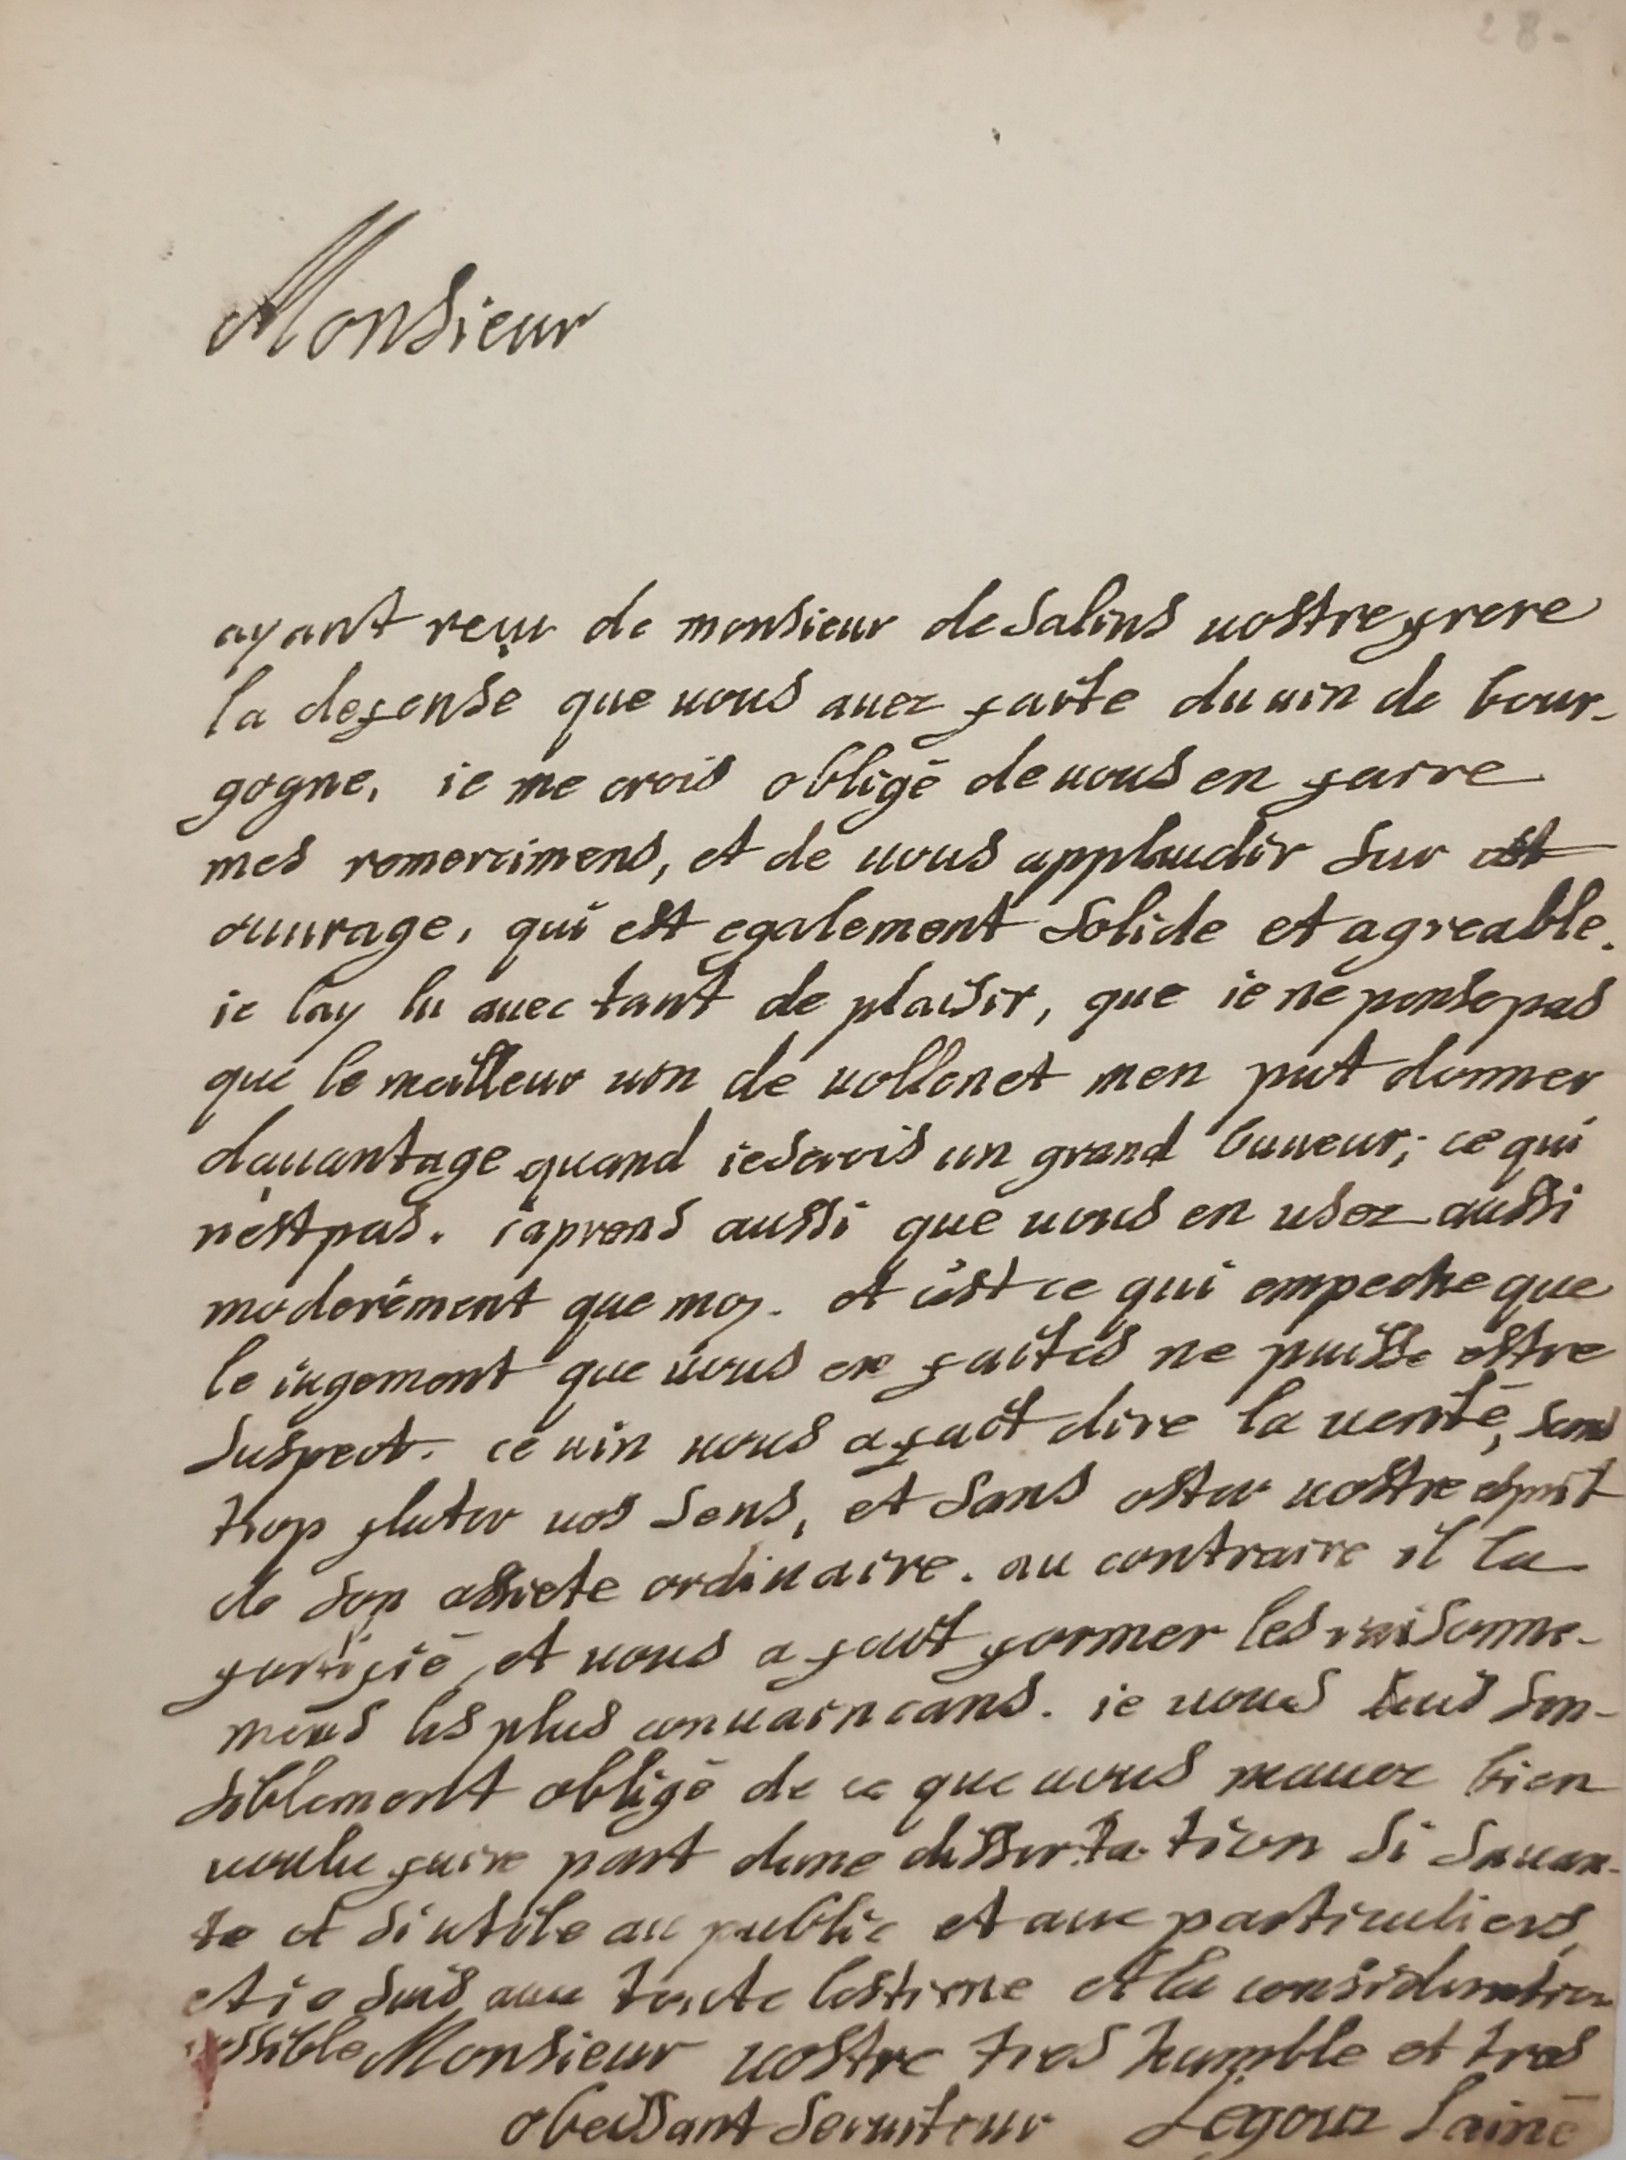 28-
Monsieur
ayant reçu de monsieur de Salins uostre frere
la defense que uous auez faite du uin de bour-
gogne, ie me crois obligé de uous en faire
mes remercimens, et de uous applaudir sur cet
ouurage, qui est egalement solide et agreable.
ie lay lu auec tant de plaisir, que ie ne pense pas
que le meilleur uin de uollenet men put donner
dauantage quand ie serois un grand buueur; ce qui
nest pas. iaprens aussi que uous en usez aussi
moderément que moy. et cest ce qui empeche que
le iugement que uous en faites ne puisse estre
suspect. ce uin uous a fait dire la uerité, sans
trop flater uos sens, et sans oster uostre esprit
de son assiete ordinaire. au contraire il la
fortifié et uous a fait former les raisonne-
mens les plus conuaincans. ie uous suis sen-
siblement obligé de ce que uous mauez bien
uoulu faire part dune dissertation si sauan-
te et si utile au public et aux particuliers,
et ie suis auec toute lestime et la consideration
possible Monsieur uostre tres humble et tres
obeissant seruiteur Legouz Lainé